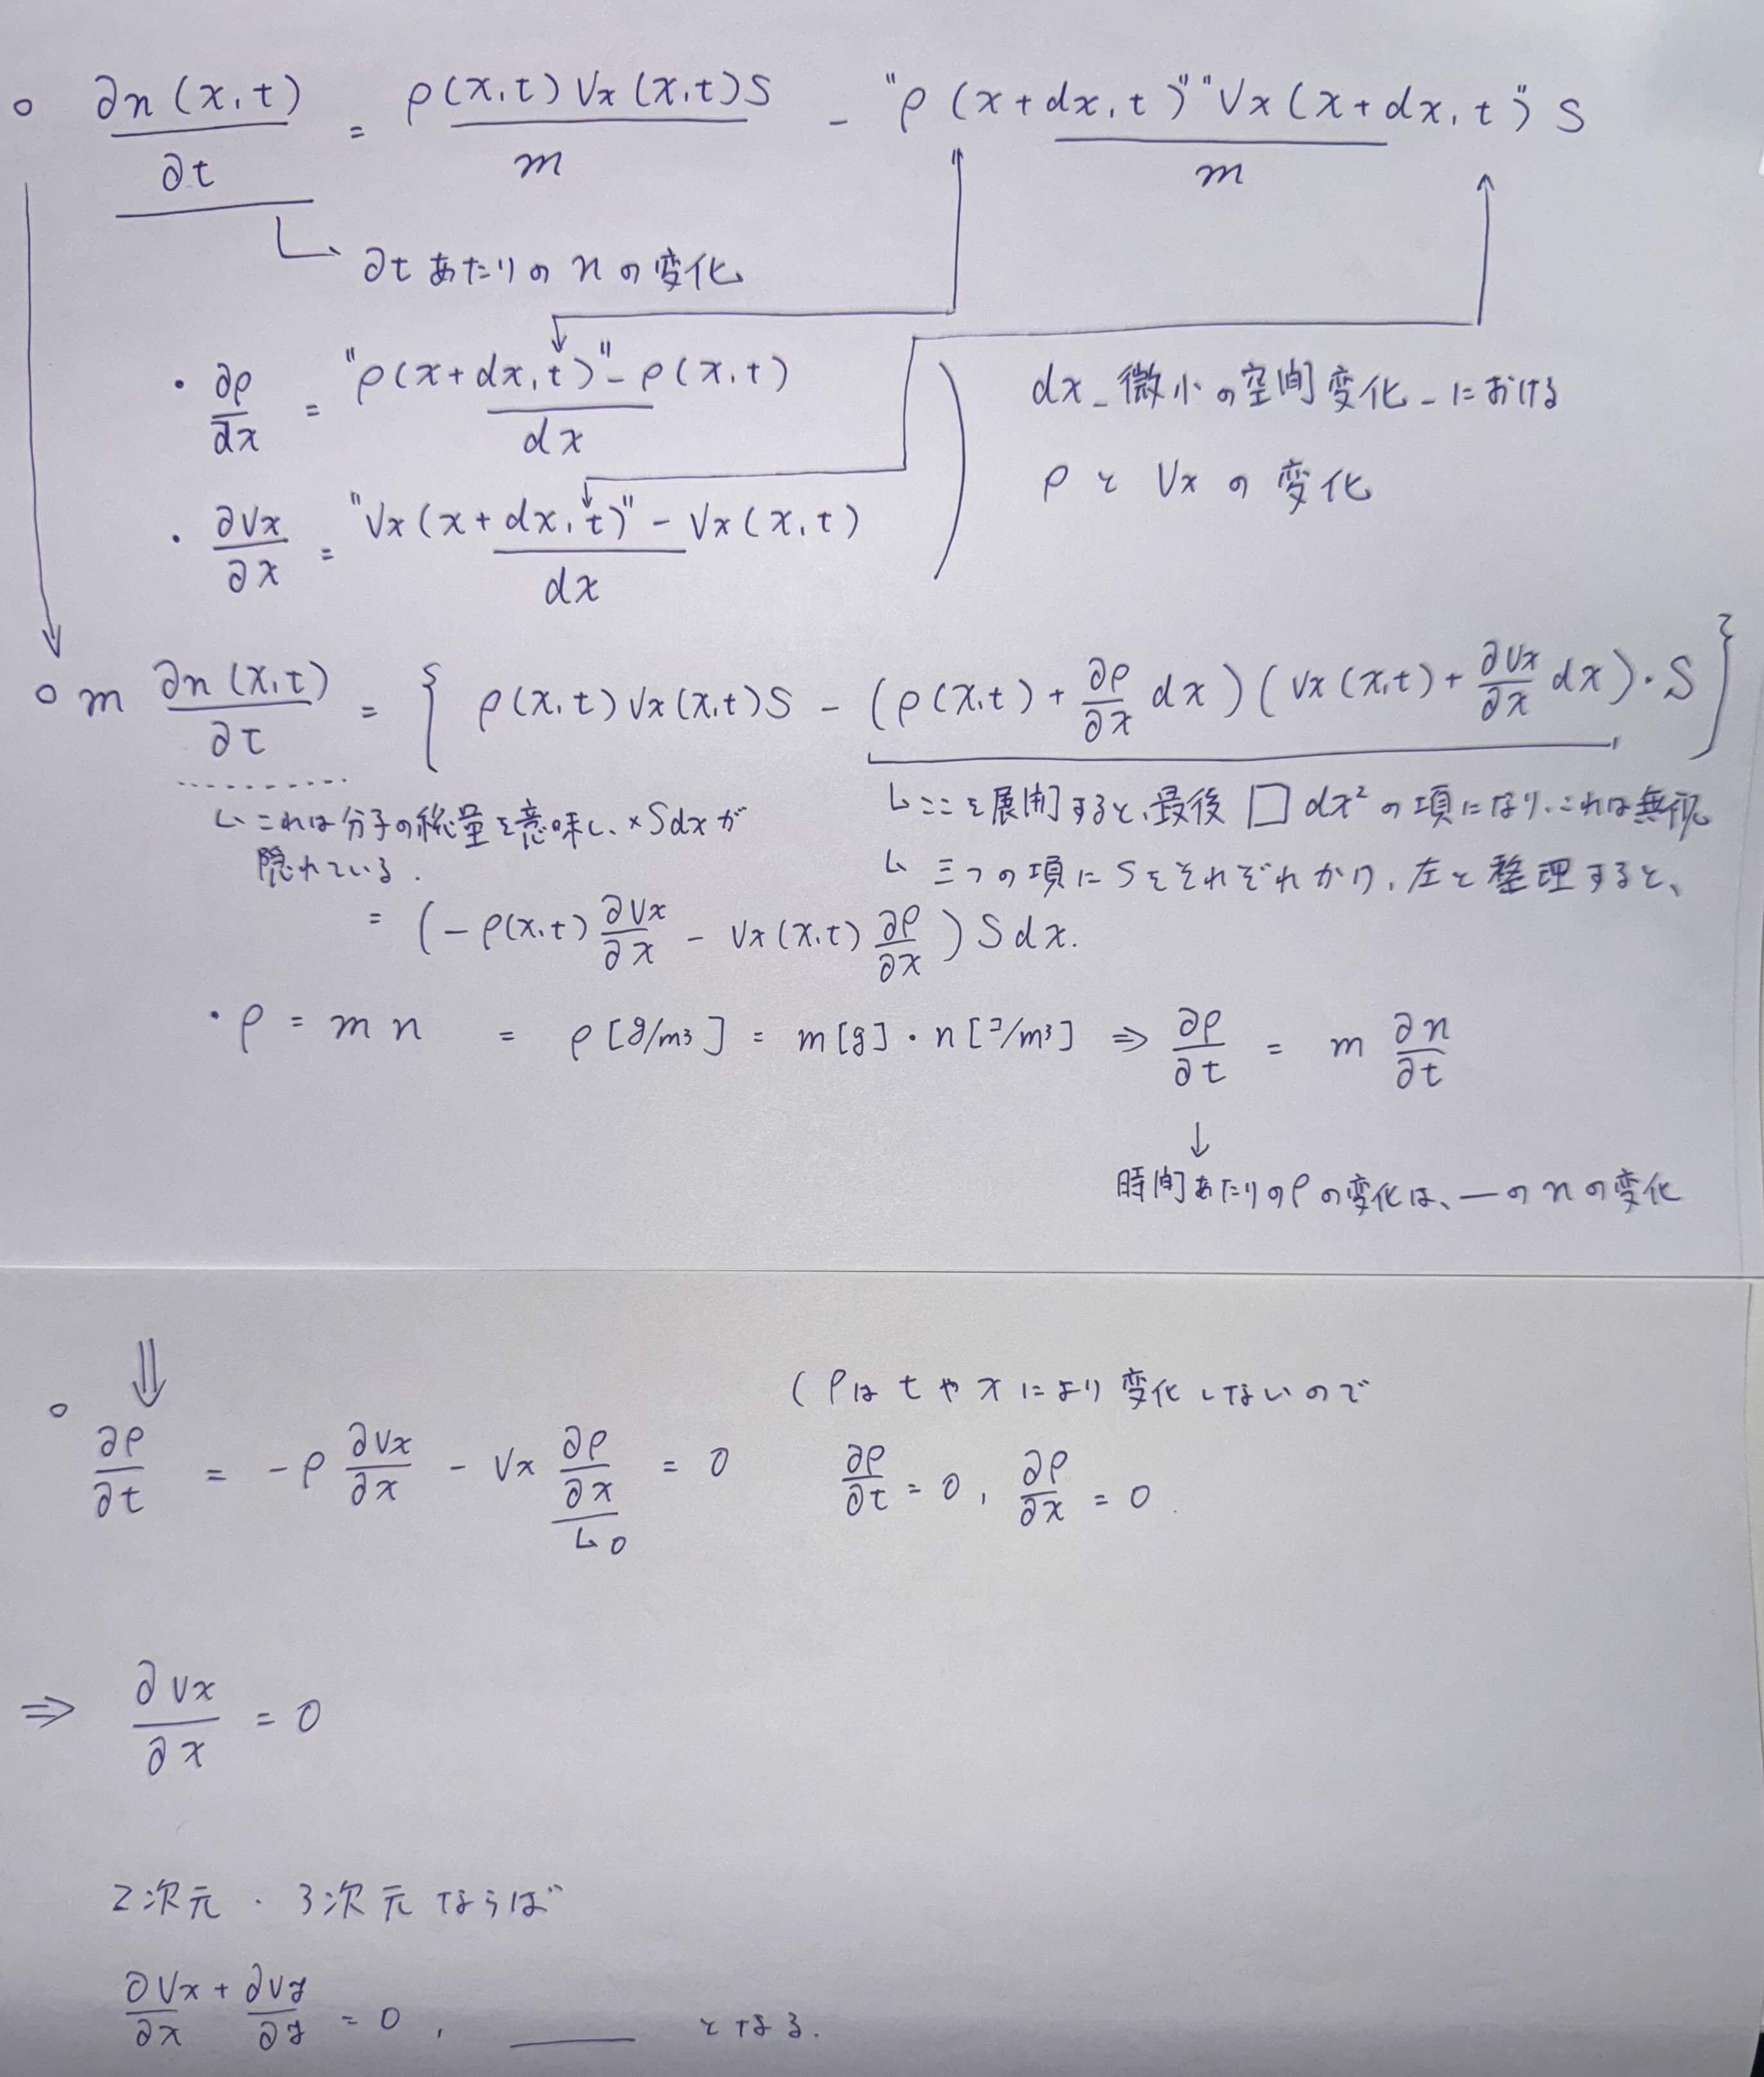 ○ ∂n(x,t)/∂t = ρ(x,t)Vx(x,t)S/m - "ρ(x+dx,t)" "Vx(x+dx,t")S/m
∂tあたりのnの変化
・∂ρ/dx = "ρ(x+dx,t)"-ρ(x,t)/dx
dx_微小の空間変化_における
ρとVxの変化
・∂Vx/∂x = "Vx(x+dx,t)"-Vx(x,t)/dx
○ m ∂n(x,t)/∂t = { ρ(x,t)Vx(x,t)S - (ρ(x,t) + ∂ρ/∂x dx)(Vx(x,t) + ∂Vx/∂x dx)・S }
↳これは分子の総量を意味し、×Sdxが
隠れている.
↳ここを展開すると、最後 □dx²の項になり、これは無視
↳三つの項にSをそれぞれかけ、左と整理すると、
= (-ρ(x,t) ∂Vx/∂x - Vx(x,t) ∂ρ/∂x) S dx.
・ρ = m n = ρ[g/m³] = m[g]・n[コ/m³] ⇒ ∂ρ/∂t = m ∂n/∂t
↓
時間あたりのρの変化は、―のnの変化
⇓
(ρはtやxにより変化しないので
○ ∂ρ/∂t = -ρ ∂Vx/∂x - Vx ∂ρ/∂x = 0
↳0
∂ρ/∂t = 0, ∂ρ/∂x = 0.
⇒ ∂Vx/∂x = 0
2次元・3次元ならば
∂Vx/∂x + ∂Vy/∂y = 0, ――― となる.